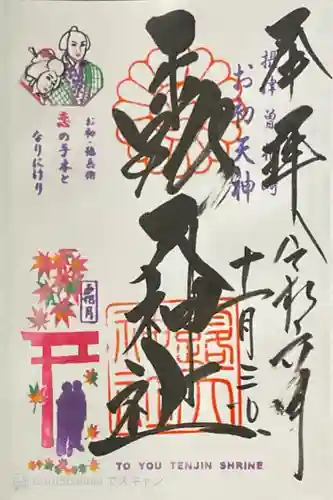 奉拝
摂津 曽根崎
お初天神
露天神社
十一月三十日
お初・徳兵衛
恋の手本と
なりにけり
霜月
TO YOU TENJIN SHRINE
でスキャン